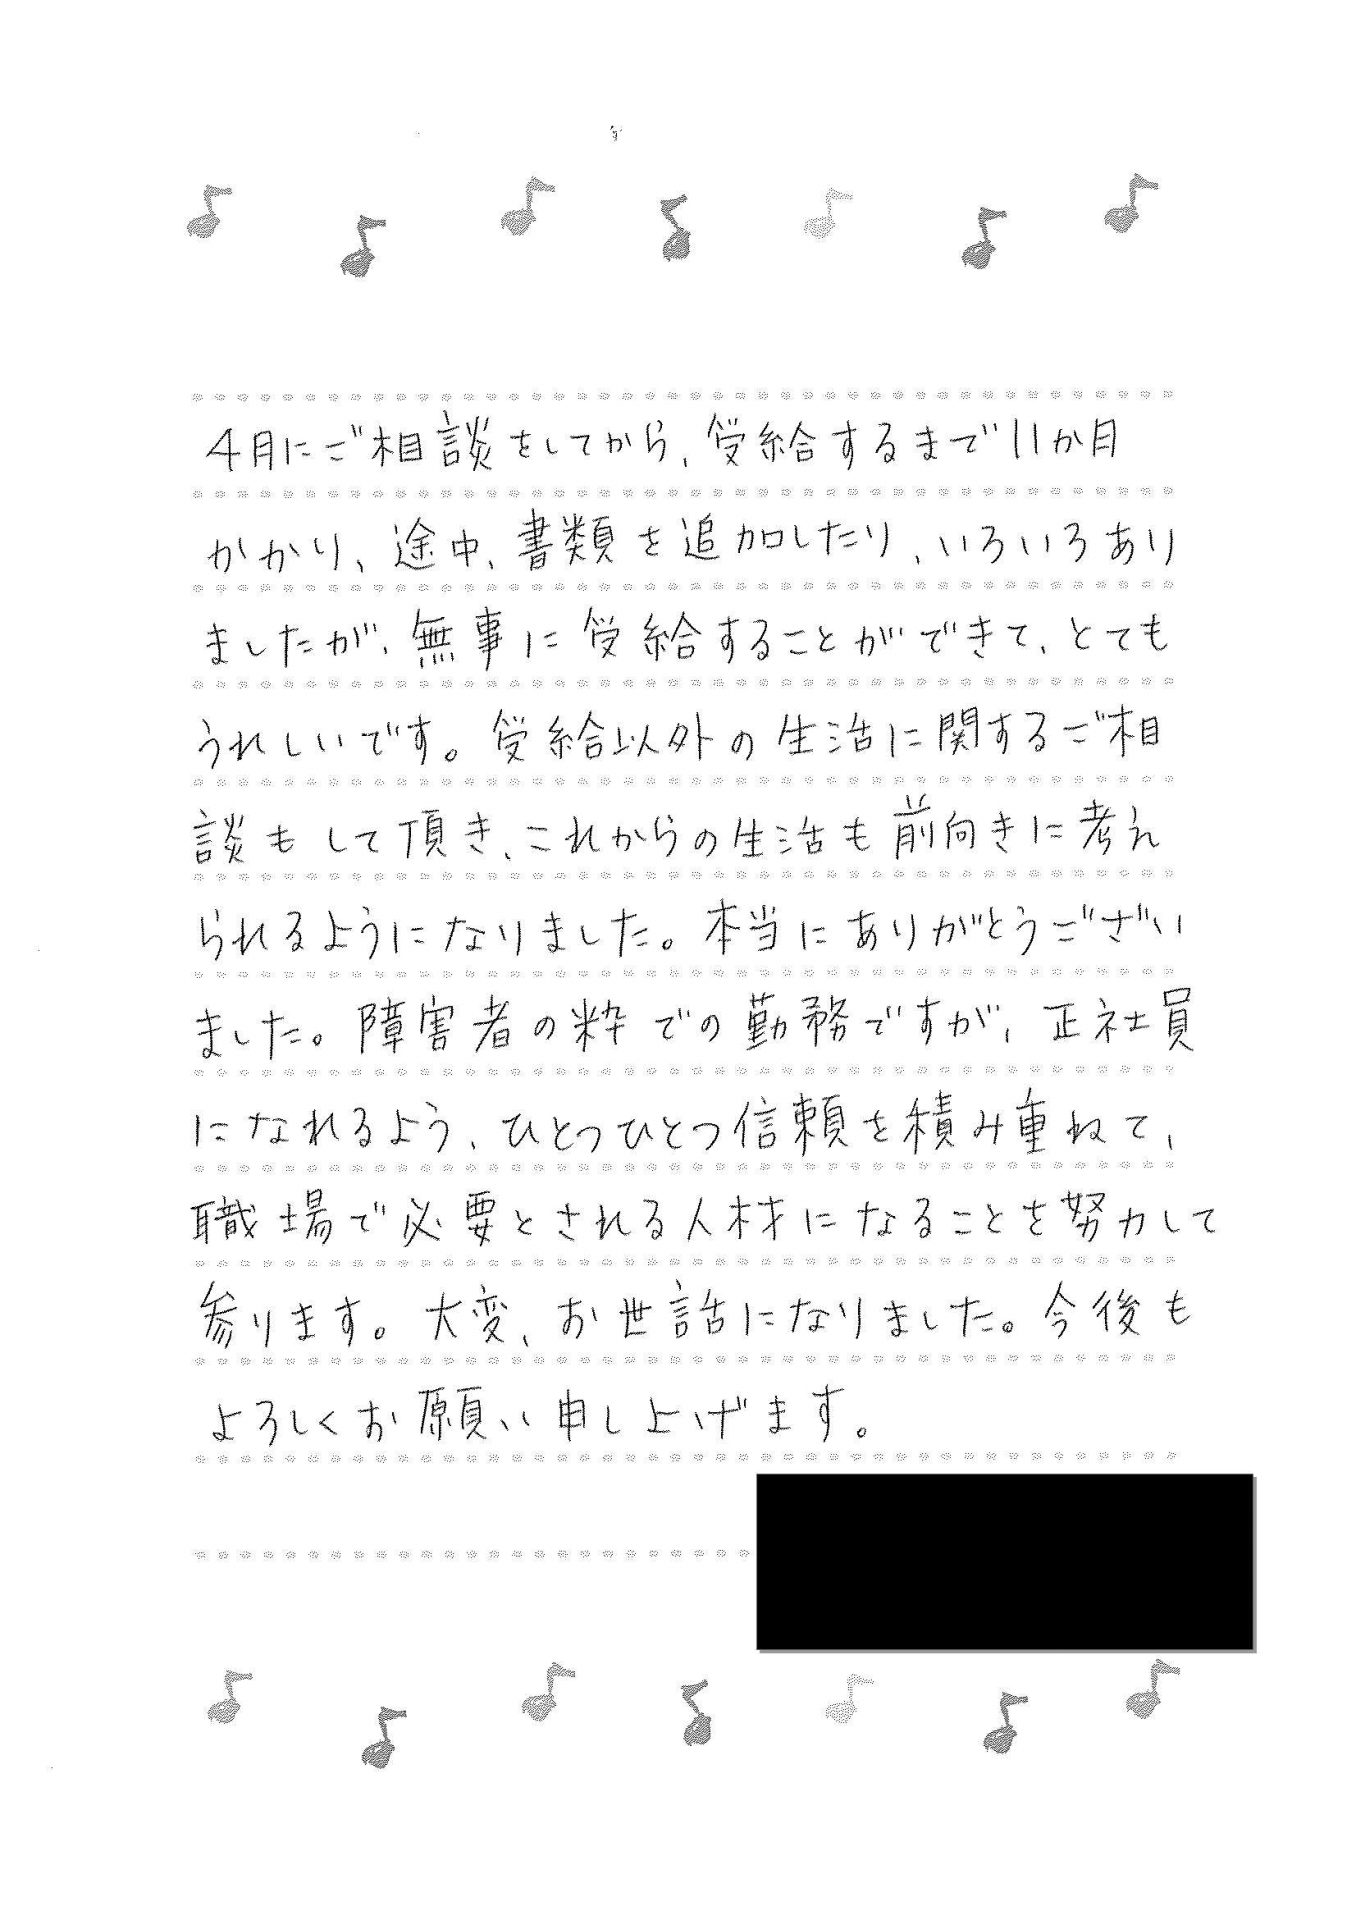 4月にご相談をしてから、受給するまで11か月
かかり、途中、書類を追加したり、いろいろあり
ましたが、無事に受給することができて、とても
うれしいです。受給以外の生活に関するご相
談もして頂き、これからの生活も前向きに考え
られるようになりました。本当にありがとうござい
ました。障害者の粋での勤務ですが、正社員
になれるよう、ひとつひとつ信頼を積み重ねて、
職場で必要とされる人材になることを努力して
参ります。大変、お世話になりました。今後も
よろしくお願い申し上げます。